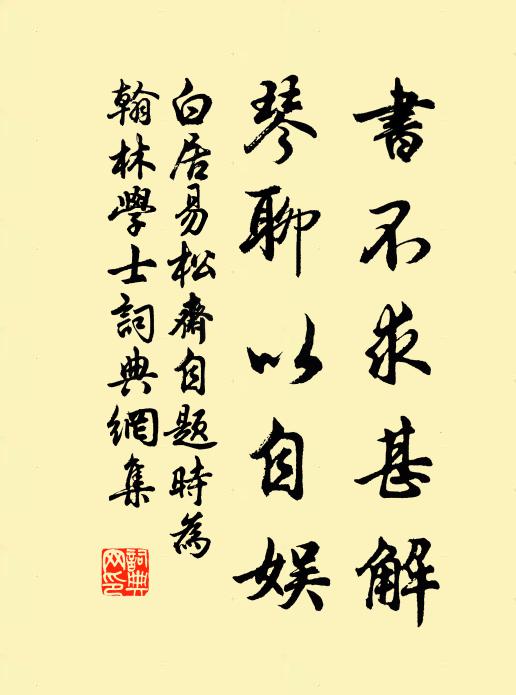 書不求甚解
琴聊以自娱
白居易松齋自題時為
翰林學士詞典網集
詞典網印